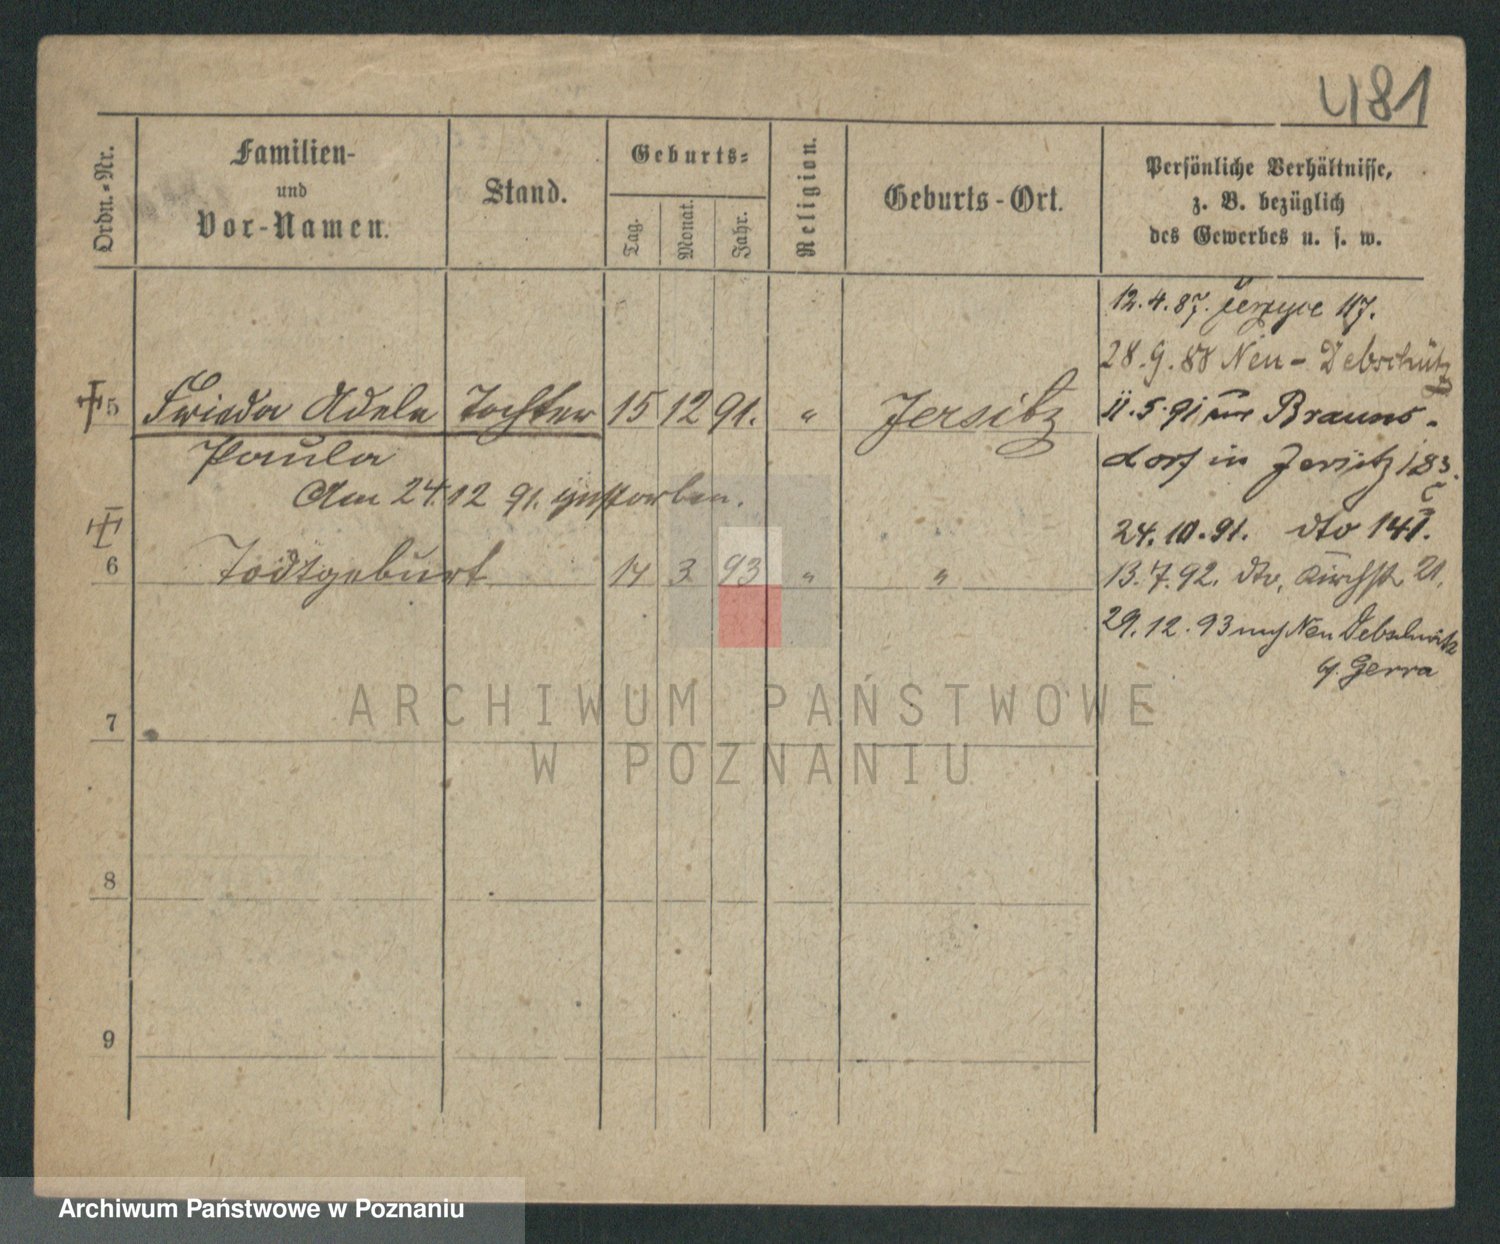 481
Ordn.-Nr.
Familien-
und
Vor-Namen.
Stand.
Geburts-
Tag.
Monat.
Jahr.
Religion.
Geburts-Ort.
Persönliche Verhältnisse,
z. B. bezüglich
des Gewerbes u. s. w.
12.4.87. 117.
28.9.88 Neu-Debschütz
5 Frieda Adele Tochter 15 12 91. " Jersitz
Paula
Am 24.12 91. gestorben.
11.5.91 Brauns-
dorf in Jersitz 183.
24.10.91. dto 141.
6 Todtgeburt 14 3 93 " "
13.7.92. dto, Kirchstr 21.
29.12.93 nach Neu
Gerra
7
8
9
ARCHIWUM PAŃSTWOWE
W POZNANIU
Archiwum Państwowe w Poznaniu